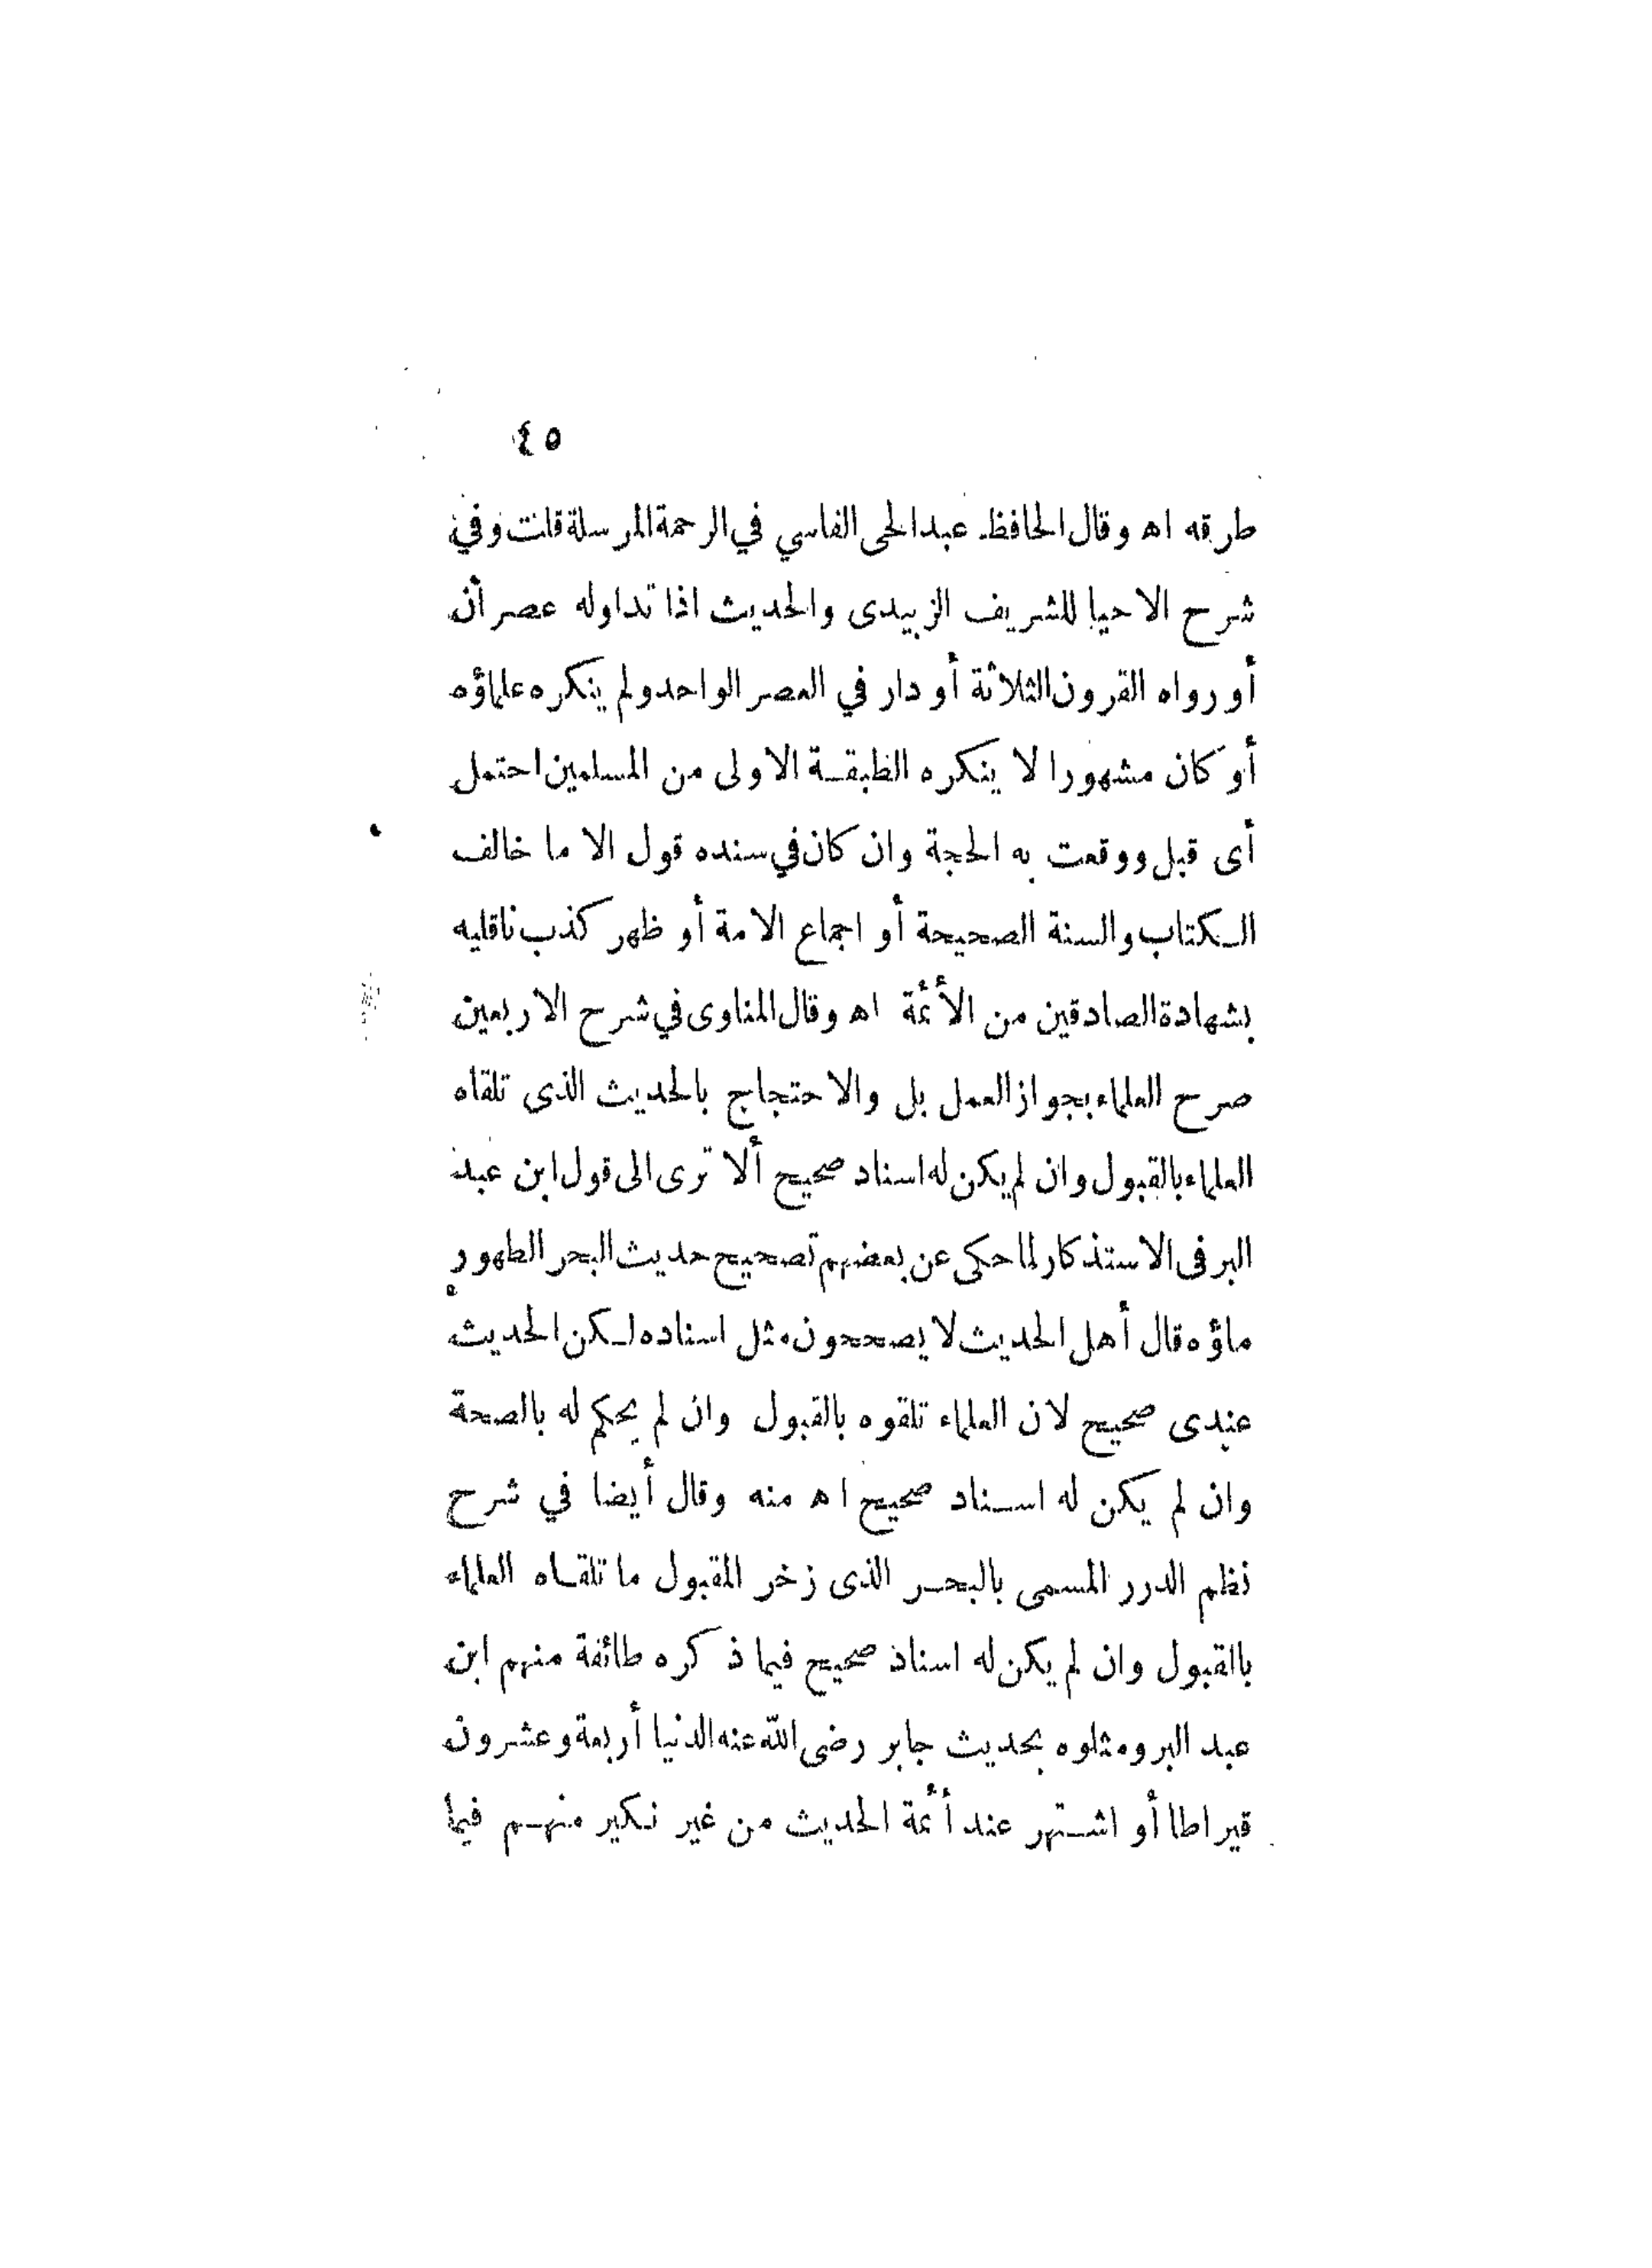 ٤٥
طرقه اه وقال الحافظ عبد الحى الفاسي في الرحمة المرسلة قلت وفي
شرح الاحيا للشريف الزبيدى والحديث اذا تداوله عصرأن
أو رواه القرون الثلاثة أو دار في العصر الواحد ولم ينكره علماؤه
أو كان مشهورا لا ينكره الطبقة الاولى من المسلمين احتمل
أى قبل ووقعت به الحجة وان كان في سنده قول الا ما خالف
الكتاب والسنة الصحيحة أو اجماع الامة أو ظهر كذب ناقليه
بشهادة الصادقين من الأئمة اه وقال المناوى في شرح الاربعين
صرح العلماء بجواز العمل بل والاحتجاج بالحديث الذى تلقاه
العلماء بالقبول وان لم يكن له اسناد صحيح ألا ترى الى قول ابن عبد
البر فى الاستذكار لما حكى عن بعضهم تصحيح حديث البحر الطهور
ماؤه قال أهل الحديث لا يصححون مثل اسناده لكن الحديث
عندى صحيح لان العلماء تلقوه بالقبول وان لم يحكم له بالصحة
وان لم يكن له اسناد صحيح اه منه وقال أيضا في شرح
نظم الدرر المسمى بالبحر الذى زخر المقبول ما تلقاه العلماء
بالقبول وان لم يكن له اسناد صحيح فيما ذكره طائفة منهم ابن
عبد البر ومثلوه بحديث جابر رضى الله عنه الدنيا أربعة وعشرون
قيراطا أو اشتهر عند أئمة الحديث من غير نكير منهم فيما